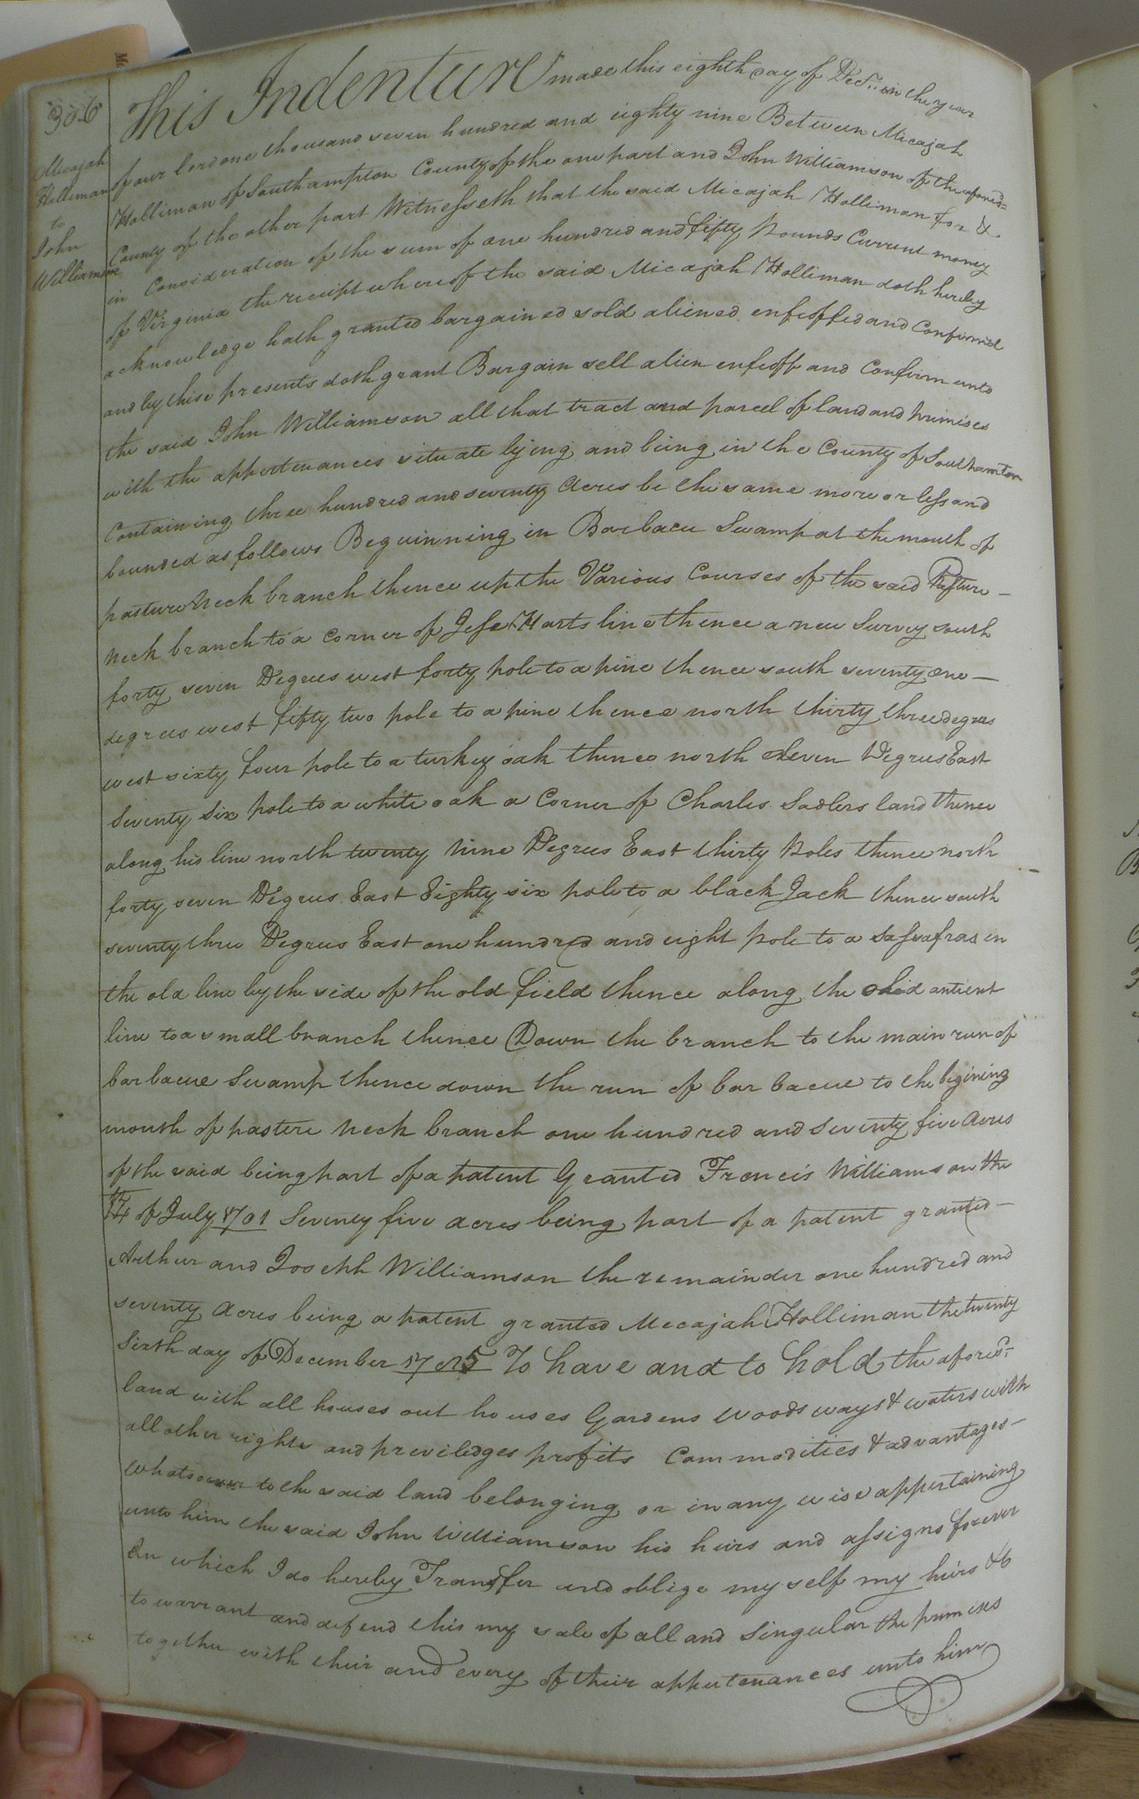 306
Micajah
Holliman
to
John
Williamson
This Indenture made this eighth day of Decr. in the year
of our lord one thousand seven hundred and eighty nine Between Micajah
Holliman of Southampton County of the one part and John Williamson of the aforesd=
County of the other part Witnesseth that the said Micajah Holliman for &
in Consideration of the sum of one hundred and fifty Pounds Current money
of Virginia the receipt whereof the said Micajah Holliman doth hereby
acknowledge hath granted bargained sold aliened enfeoffed and Confirmed
and by these presents doth grant Bargain sell alien enfeoff and Confirm unto
the said John Williamson all that tract and parcel of land and primises
with the appertenances situate lying and being in the County of Southamton
Containing three hundred and seventy Acres be the same more or less and
bounded as follows Beguinning in Barbacu Swamp at the mouth of
pasture Neck branch thence up the Various Courses of the said Pasture—
Neck branch to a Corner of Jesse Harts line thence a new Survey south
forty seven Degrees west forty pole to a pine thence south seventy one—
degrees west fifty two pole to a pine thence north thirty three degrees
west sixty four pole to a turkey oak thence north eleven Degrees East
Seventy six pole to a white oak a Corner of Charles Sadlers land thence
along his line north twenty Nine Degrees East thirty Poles thence north
forty seven Degrees East Eighty six pole to a black Jack thence south
seventy three Degrees East one hundred and eight pole to a Sassafras in
the old line by the side of the old field thence along the antient
line to a small branch thence Down the branch to the main run of
barbacue Swamp thence down the run of barbacue to the begining
mouth of pasture Neck branch one hundred and Seventy five Acres
of the said being part of a patent Granted Francis Williamson the
of July 1701 Seventy five acres being part of a patent granted—
Arthur and Joseph Williamson the remainder one hundred and
seventy Acres being a patent granted Mecajah Holliman the twenty
Sixth day of December To have and to hold the aforesd.=
land with all houses out houses Gardens Woods ways & waters with
all other rights and previledges profits Commodities & advantages—
Whatsoever to the said land belonging or in any wise appertaining
unto him the said John Williamson his heirs and assigns forever
In which I do hereby Transfer and oblige my self my heirs &c
to warrant and defend this my sale of all and Singular the primises
together with their and every of their appurtenances unto him